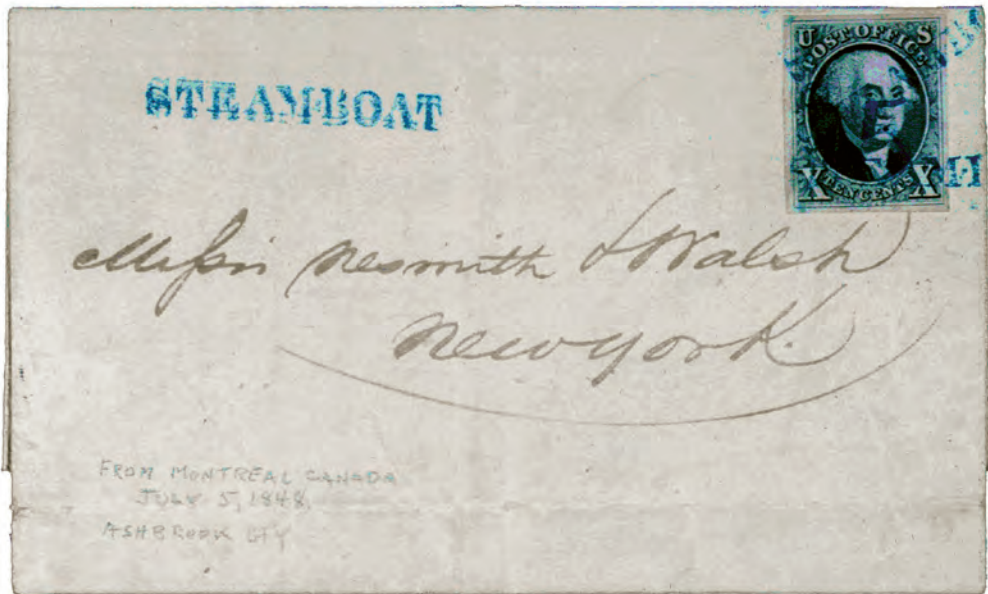 STEAMBOAT
U S
POST OFFICE
X TEN CENTS X
Nesmith & Walsh
New York.
FROM MONTREAL CANADA
JULY 5, 1848.
ASHBROOK